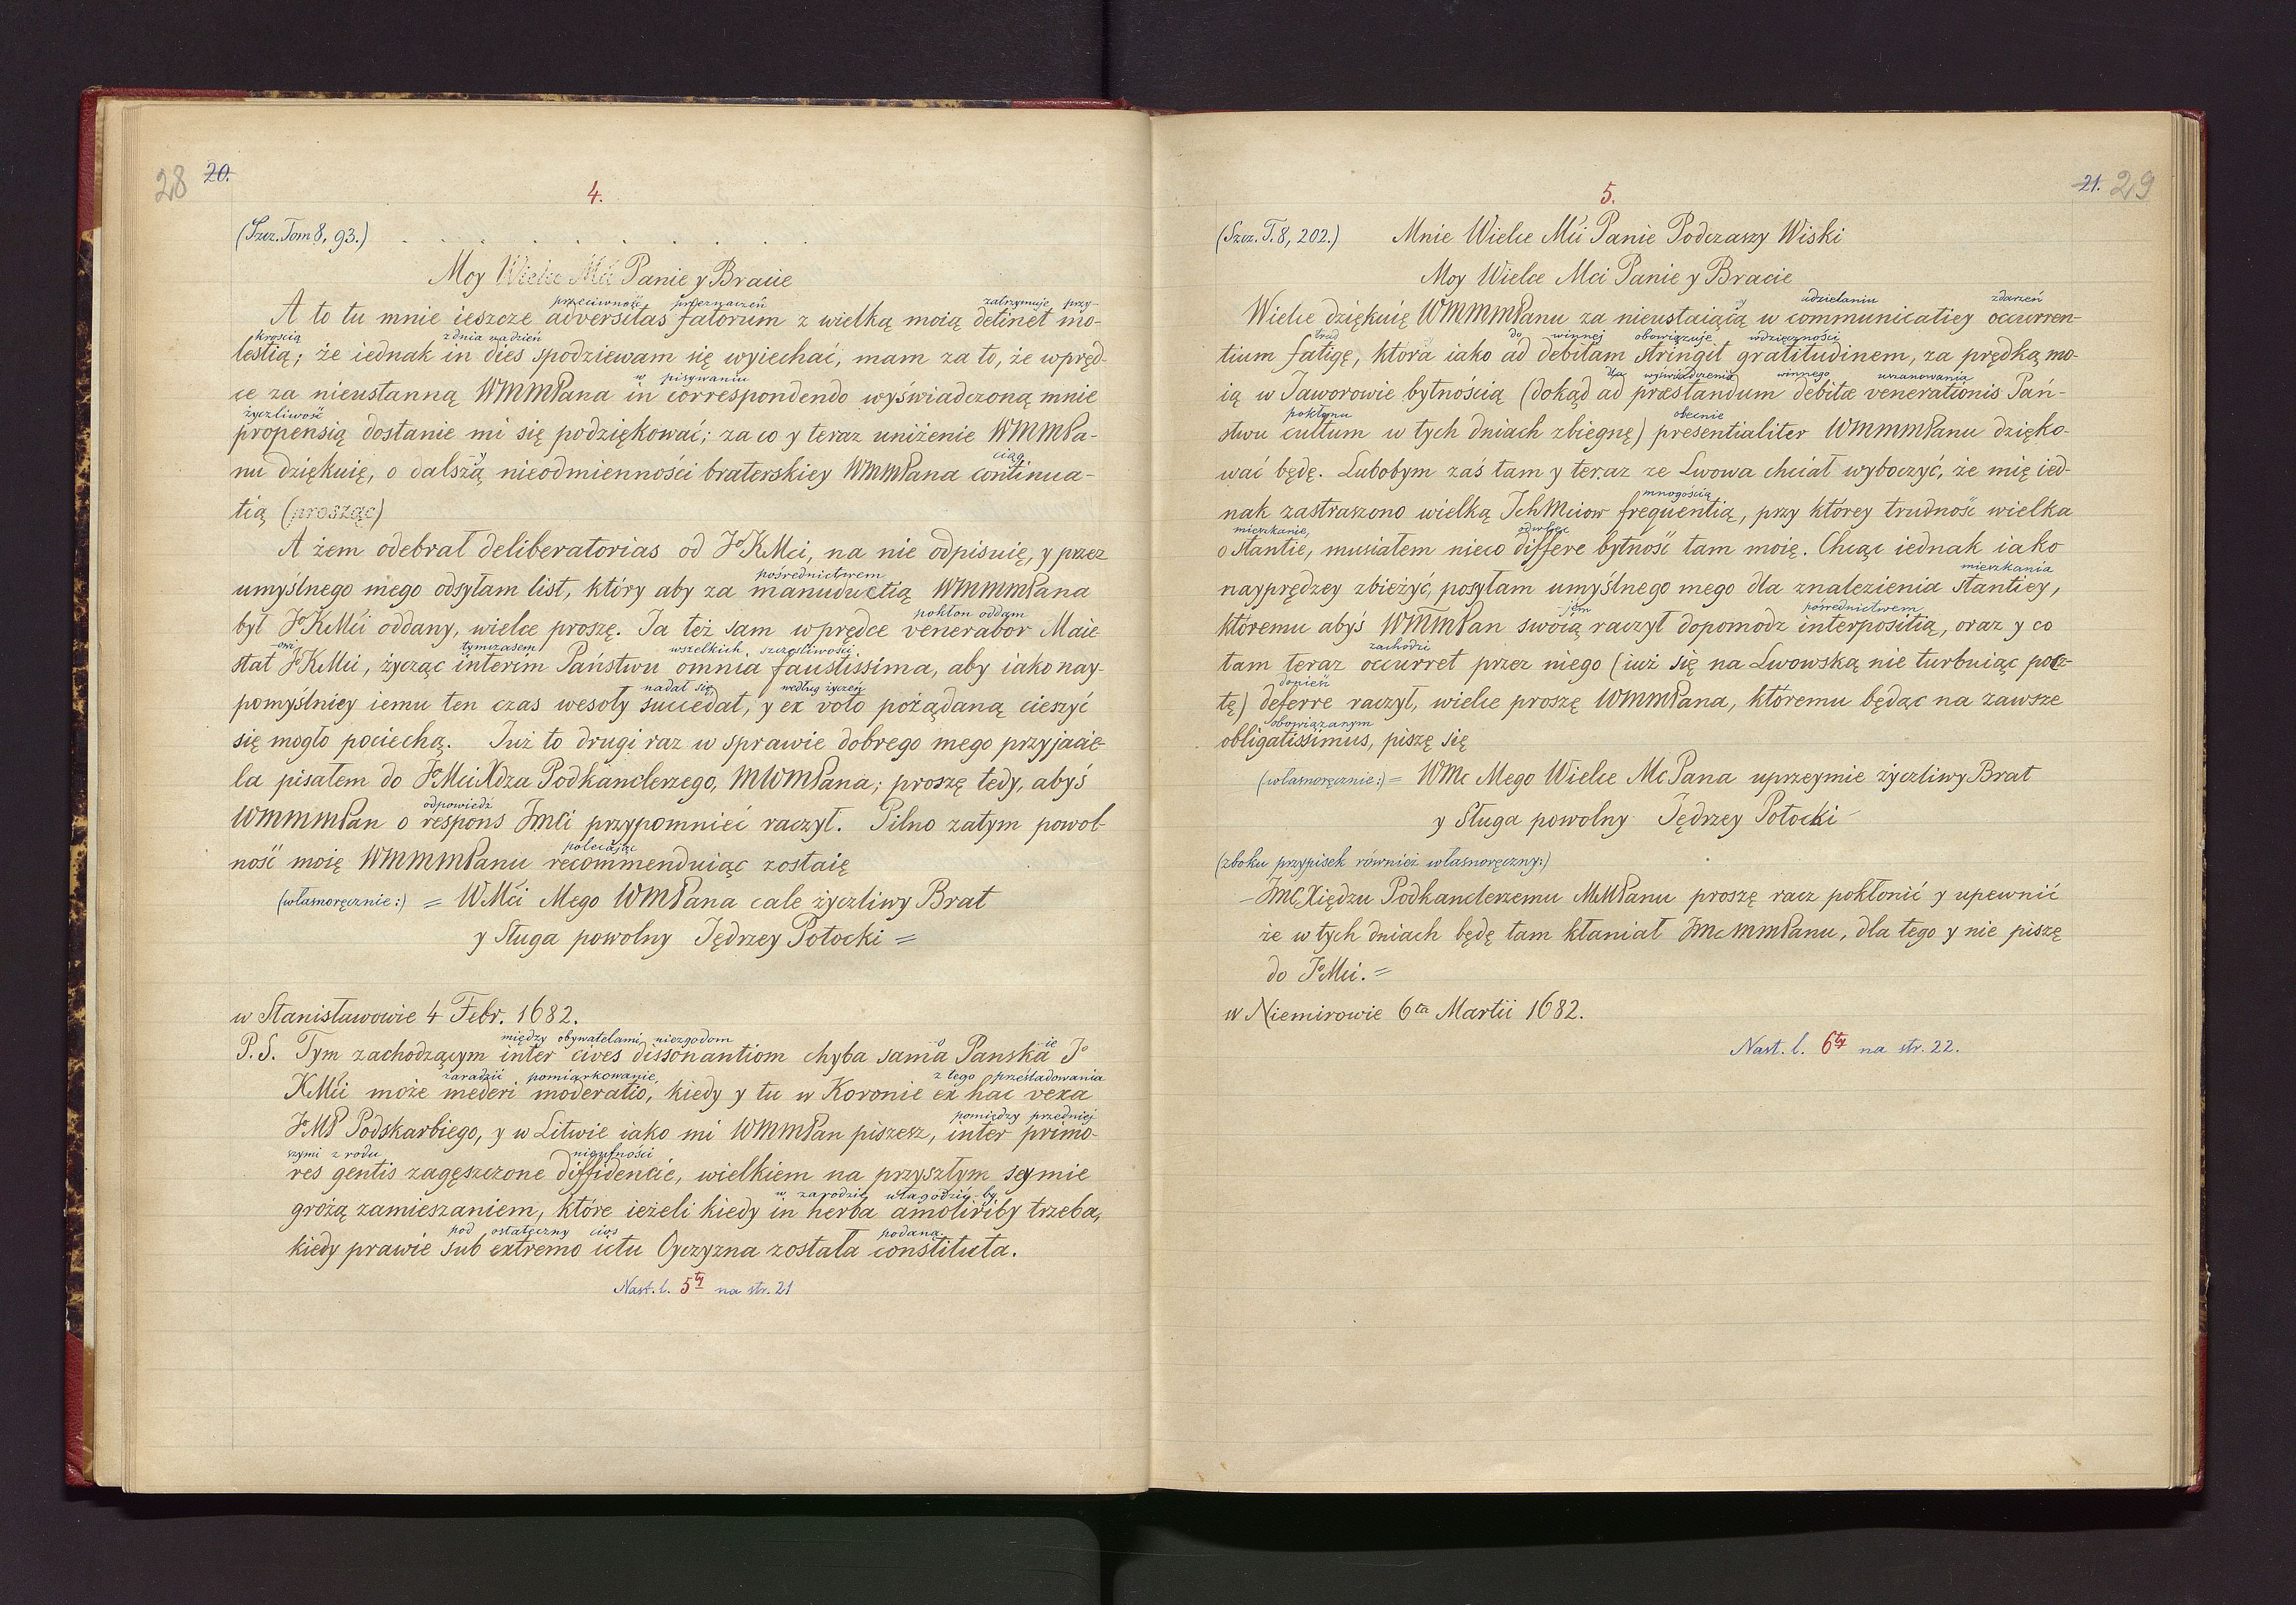 28 20.
4.
(Szcz. Tom 8, 93.) . . . . . . . . . .
Moy Wielce Mći Panie y Bracie
przeciwność przeznaczeń zatrzymuje przy-
A to tu mnie ieszcze adversitas fatorum z wielką moią detinet mo-
krością z dnia na dzień
lestią; że iednak in dies spodziewam się wyiechać, mam za to, że wpręd-
w pisywaniu
ce za nieustanną WMMPana in correspondendo wyświadczoną mnie
życzliwość
propensią dostanie mi się podziękować; za co y teraz uniżenie WMMPa-
ciąg
nu dziękuię, o dalszą nieodmienności braterskiey WMMPana continua-
tią (prosząc)
A żem odebrał deliberatorias od JoKMci, na nie odpisuię, y przez
pośrednictwem
umyślnego mego odsyłam list, który aby za manuductią WMMMPana
pokłon oddam
był JoKMći oddany, wielce proszę. Ja też sam wprędce venerabor Maie-
owi tymczasem wszelkich szczęśliwości
stat JoKMci, życząc interim Państwu omnia faustissima, aby iako nay-
nadał się według życzeń
pomyślniey iemu ten czas wesoły succedat, y ex voto pożądaną cieszyć
się mogło pociechą. Już to drugi raz w sprawie dobrego mego przyjacie-
la pisałem do JoMciXdza Podkanclerzego, MWMPana; proszę tedy, abyś
odpowiedź
WMMMPan o respons JmCi przypomnieć raczył. Pilno zatym powol-
polecając
ność moię WMMMPanu recommenduiąc zostaię
(własnoręcznie:) = WMći Mego WMPana cale życzliwy Brat
y Sługa powolny Jędrzey Potocki =
w Stanisławowie 4 Febr. 1682.
między obywatelami niezgodom o ie
P.S. Tym zachodzącym inter cives dissonantiom chyba sama Panska Jo
zaradzić pomiarkowanie, z tego prześladowania
KMći może mederi moderatio, kiedy y tu w Koronie ex hac vexa
pomiędzy przedniej
JoMP Podskarbiego, y w Litwie iako mi WMMPan piszesz, inter primo-
szymi z rodu nieufności
res gentis zagęszczone diffidencie, wielkiem na przyszłym seymie
w zarodzie ułagodzić by
grożą zamieszaniem, które ieżeli kiedy in herba amoliriby trzeba,
pod ostateczny cios podana
kiedy prawie sub extremo ictu Oyczyzna została constituta.
Nast. l. 5ty na str. 21
21. 29
5.
(Szcz. T. 8, 202.) Mnie Wielce Mći Panie Podczaszy Wiski
Moy Wielce Mci Panie y Bracie
udzielaniu zdarzeń
Wielce dziękuię WMMMPanu za nieustaiącą w communicatiey occurren-
trud do winnej obowiązuje wdzięczności
tium fatigę, która iako ad debitam stringit gratitudinem, za prędką mo-
dla wyświadczenia winnego uszanowania
ią w Jaworowie bytnością (dokąd ad præstandum debitæ venerationis Pań-
pokłonu obecnie
stwu cultum w tych dniach zbiegnę) presentialiter WMMMPanu dzięko-
wać będę. Lubobym zaś tam y teraz ze Lwowa chciał wyboczyć, że mię ied-
mnogością
nak zastraszono wielką IchMciow frequentią, przy którey trudność wielka
mieszkanie, odwlec
o stantie, musiałem nieco differe bytność tam moię. Chcąc iednak iako
mieszkania
nayprędzey zbieżyć, posyłam umyślnego mego dla znalezienia stantiey,
pośrednictwem
któremu abyś WMMPan swoią raczył dopomodz interpositią, oraz y co
zachodzi
tam teraz occurret przez niego (iuż się na Lwowską nie turbuiąc pocz-
donieść
tę) deferre raczył, wielce proszę WMMPana, któremu będąc na zawsze
obowiązanym
obligatissimus, piszę się
(własnoręcznie:) = WMc Mego Wielce Mc Pana uprzeymie życzliwy Brat
y Sługa powolny Jędrzey Potocki
(z boku przypisek również własnoręczny:)
– JmCXiędzu Podkanclerzemu MMPanu proszę racz pokłonić y upewnić
że w tych dniach będę tam kłaniał JmcMMPanu, dla tego y nie piszę
do JoMci. =
w Niemirowie 6ta Martii 1682.
Nast. l. 6ty na str. 22.